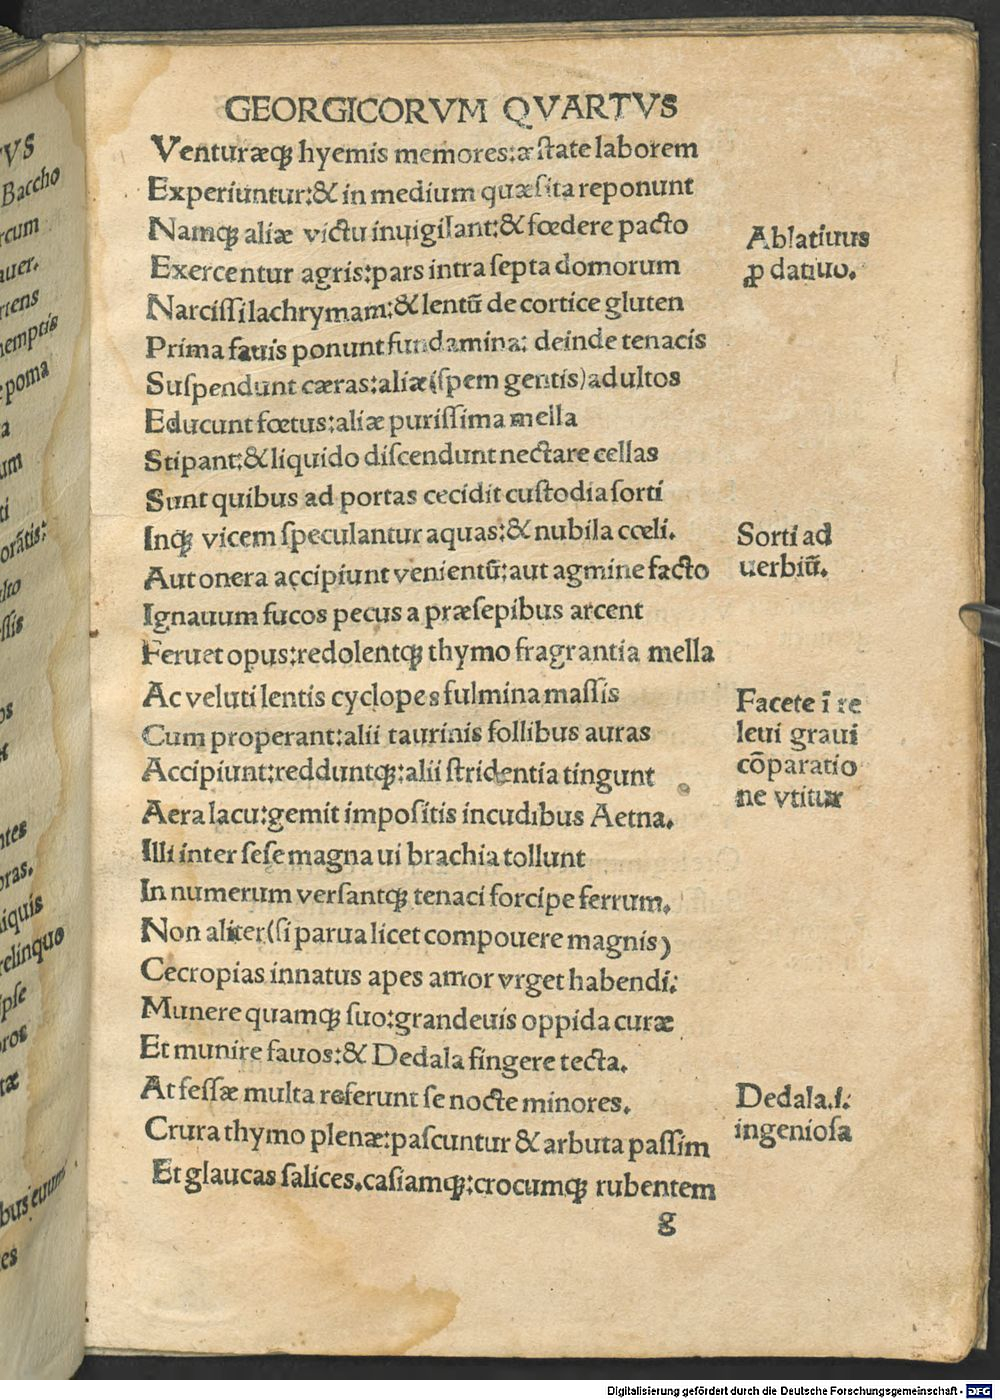 GEORGICORVM QVARTVS
Venturæq; hyemis memores:æſtate laborem
Experiuntur:& in medium quæſita reponunt
Namq; aliæ victu inuigilant:& fœdere pacto
Exercentur agris:pars intra ſepta domorum
Narciſſi lachrymam:& lentū de cortice gluten
Prima fauis ponunt fundamina: deinde tenacis
Suſpendunt cæras:aliæ(ſpem gentis)adultos
Educunt fœtus:aliæ puriſſima mella
Stipant:& liquido diſcendunt nectare cellas
Sunt quibus ad portas cecidit cuſtodia ſorti
Inq; vicem ſpeculantur aquas:& nubila cœli.
Aut onera accipiunt venientū:aut agmine facto
Ignauum fucos pecus a præſepibus arcent
Feruet opus:redolentq; thymo fragrantia mella
Ac veluti lentis cyclopes fulmina maſſis
Cum properant:alii taurinis follibus auras
Accipiunt:redduntq;:alii ſtridentia tingunt
Aera lacu:gemit impoſitis incudibus Aetna.
Illi inter ſeſe magna ui brachia tollunt
In numerum verſantq; tenaci forcipe ferrum.
Non aliter(ſi parua licet compouere magnis)
Cecropias innatus apes amor vrget habendi:
Munere quamq; ſuo:grandeuis oppida curæ
Et munire fauos:& Dedala fingere tecta.
At feſſæ multa referunt ſe nocte minores.
Crura thymo plenæ:paſcuntur & arbuta paſſim
Et glaucas ſalices.caſiamq;:crocumq; rubentem
g
Ablatiuus
ꝓ datiuo.
Sorti ad
uerbiū.
Facete ī re
leui graui
cōparatio
ne vtitur
Dedala.ſ.
ingenioſa
VS
Baccho
rcum
auer.
rtens
emptis
poma
a
um
ti
orātis:
lto
ſſis
os
ntes
oras.
iquis
relinquo
ipſe
tæ
bus euum
es
Digitalisierung gefördert durch die Deutsche Forschungsgemeinschaft - DFG